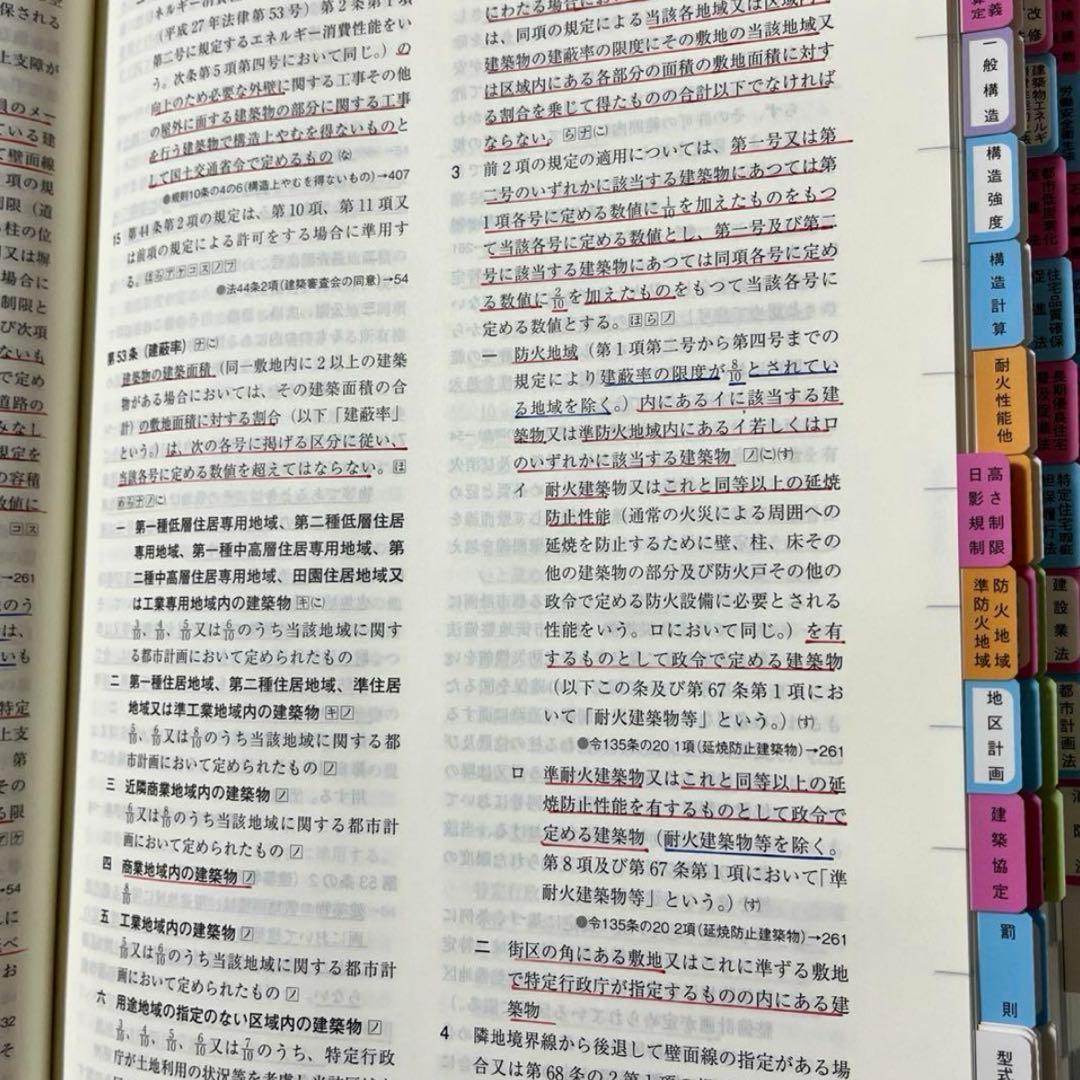 ネルギー消費
(平成27年法律第53号)第2条第1項
第二号に規定するエネルギー消費性能をい
う。次条第5項第四号において同じ。)の
向上のため必要な外壁に関する工事その他
の屋外に面する建築物の部分に関する工事
を行う建築物で構造上やむを得ないものと
して国土交通省令で定めるもの(な)
●規則10条の4の6(構造上やむを得ないもの)→407
15 第44条第2項の規定は、第10項、第11項又
は前項の規定による許可をする場合に準用す
る。ほらアテコスノフ
●法44条2項(建築審査会の同意)→54
第53条(建蔽率)ナ(に)
建築物の建築面積(同一敷地内に2以上の建築
物がある場合においては、その建築面積の合
計)の敷地面積に対する割合(以下「建蔽率」
という。)は、次の各号に掲げる区分に従い、
当該各号に定める数値を超えてはならない。ほ
めらナノ(に)
一 第一種低層住居専用地域、第二種低層住居
専用地域、第一種中高層住居専用地域、第
二種中高層住居専用地域、田園住居地域又
は工業専用地域内の建築物キ(に)
3/10、4/10、5/10又は6/10のうち当該地域に関す
る都市計画において定められたもの
二 第一種住居地域、第二種住居地域、準住居
地域又は準工業地域内の建築物キノ
5/10、6/10又は8/10のうち当該地域に関する都
市計画において定められたものノ
三 近隣商業地域内の建築物ノ
6/10又は8/10のうち当該地域に関する都市計
画において定められたものノ
四 商業地域内の建築物ノ
8/10
五 工業地域内の建築物ノ
5/10又は6/10のうち当該地域に関する都市計
画において定められたものノ
六 用途地域の指定のない区域内の建築物ノ
3/10、4/10、5/10、6/10又は7/10のうち、特定行政
庁が土地利用の状況等を考慮し当該区域を
にわたる場合に
は、同項の規定による当該各地域又は区域内の
建築物の建蔽率の限度にその敷地の当該地域又
は区域内にある各部分の面積の敷地面積に対す
る割合を乗じて得たものの合計以下でなければ
ならない。らナ(に)
3 前2項の規定の適用については、第一号又は第
二号のいずれかに該当する建築物にあつては第
1項各号に定める数値に1/10を加えたものをもつ
て当該各号に定める数値とし、第一号及び第二
号に該当する建築物にあつては同項各号に定め
る数値に2/10を加えたものをもつて当該各号に
定める数値とする。ほらノ
一 防火地域(第1項第二号から第四号までの
規定により建蔽率の限度が8/10とされてい
る地域を除く。)内にあるイに該当する建
築物又は準防火地域内にあるイ若しくはロ
のいずれかに該当する建築物ノ(に)(す)
イ 耐火建築物又はこれと同等以上の延焼
防止性能(通常の火災による周囲への
延焼を防止するために壁、柱、床その
他の建築物の部分及び防火戸その他の
政令で定める防火設備に必要とされる
性能をいう。ロにおいて同じ。)を有
するものとして政令で定める建築物
(以下この条及び第67条第1項にお
いて「耐火建築物等」という。)(す)
●令135条の20 1項(延焼防止建築物)→261
ロ 準耐火建築物又はこれと同等以上の延
焼防止性能を有するものとして政令で
定める建築物(耐火建築物等を除く。
第8項及び第67条第1項において「準
耐火建築物等」という。)(す)
●令135条の20 2項(延焼防止建築物)→261
二 街区の角にある敷地又はこれに準ずる敷地
で特定行政庁が指定するものの内にある建
築物
4 隣地境界線から後退して壁面線の指定がある場
合又は第68条の2第1項の
一般構造
構造強度
構造計算
耐火性能他
高さ制限
日影規制
防火地域
準防火地域
地区計画
建築協定
罰則
型式
建設業法
都市計画法